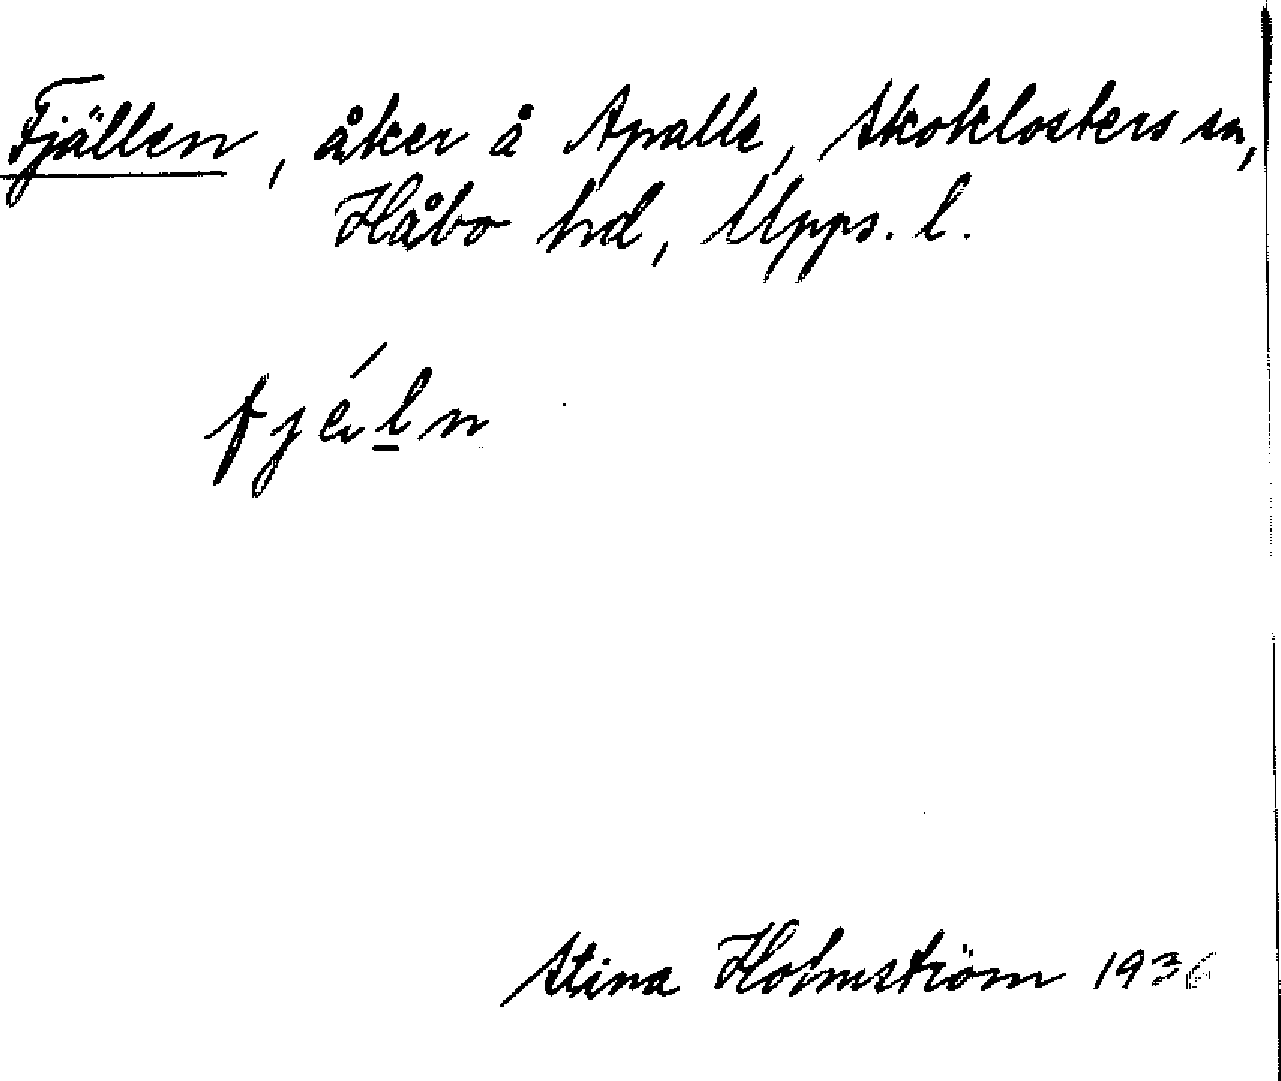 Fjällen, åker å Apalle, Skoklosters sn,
Håbo hd, Upps. l.
fjéln
Stina Holmström 1936